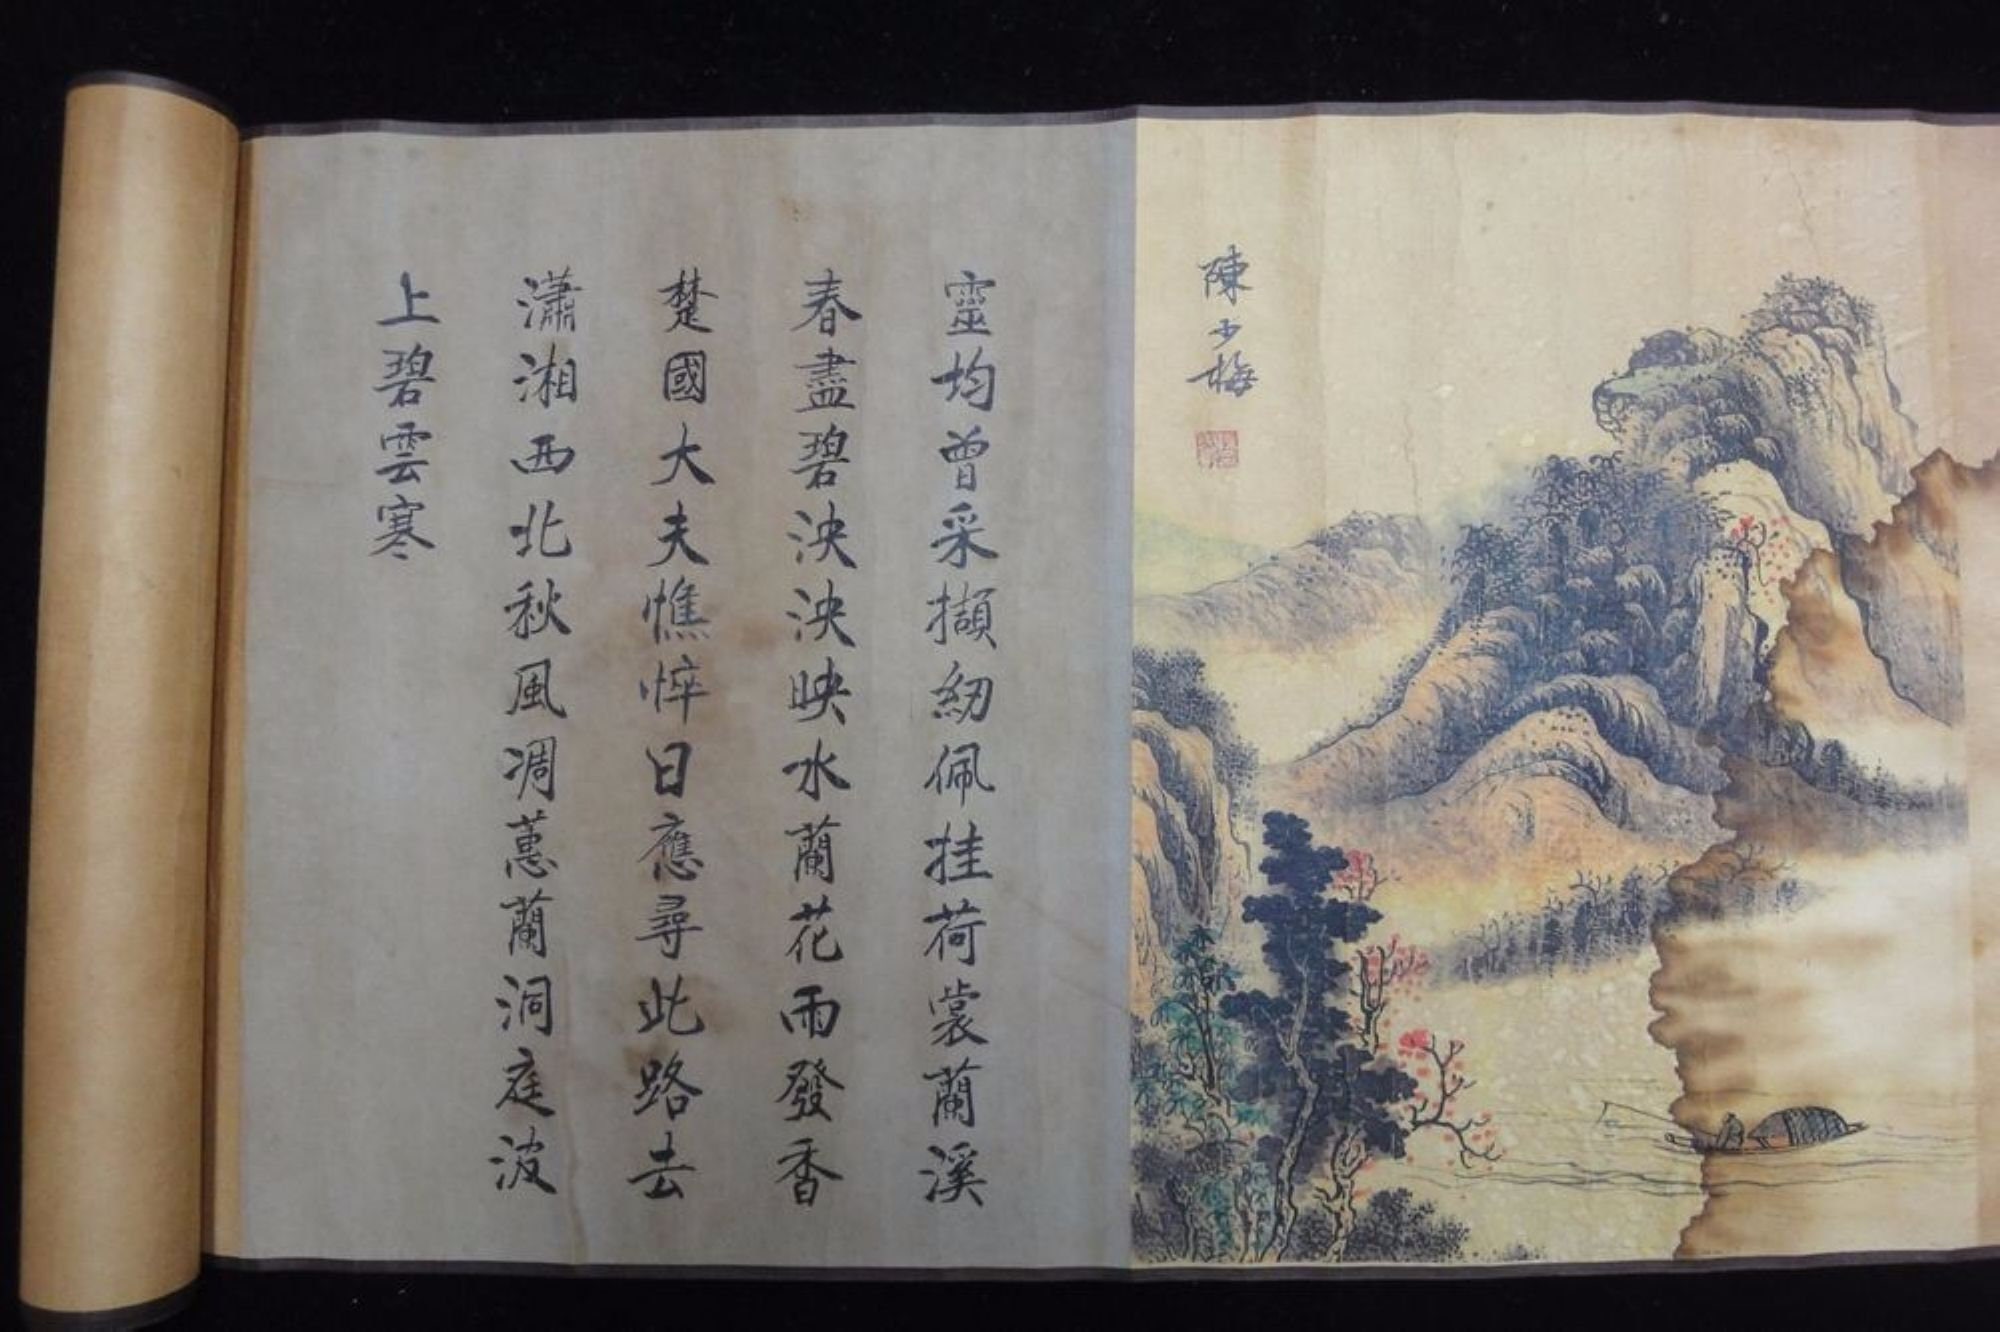 陳少梅
靈均曾采擷紉佩挂荷裳蘭溪
春盡碧泱泱映水蘭花雨發香
楚國大夫憔悴日應尋此路去
瀟湘西北秋風凋蕙蘭洞庭波
上碧雲寒